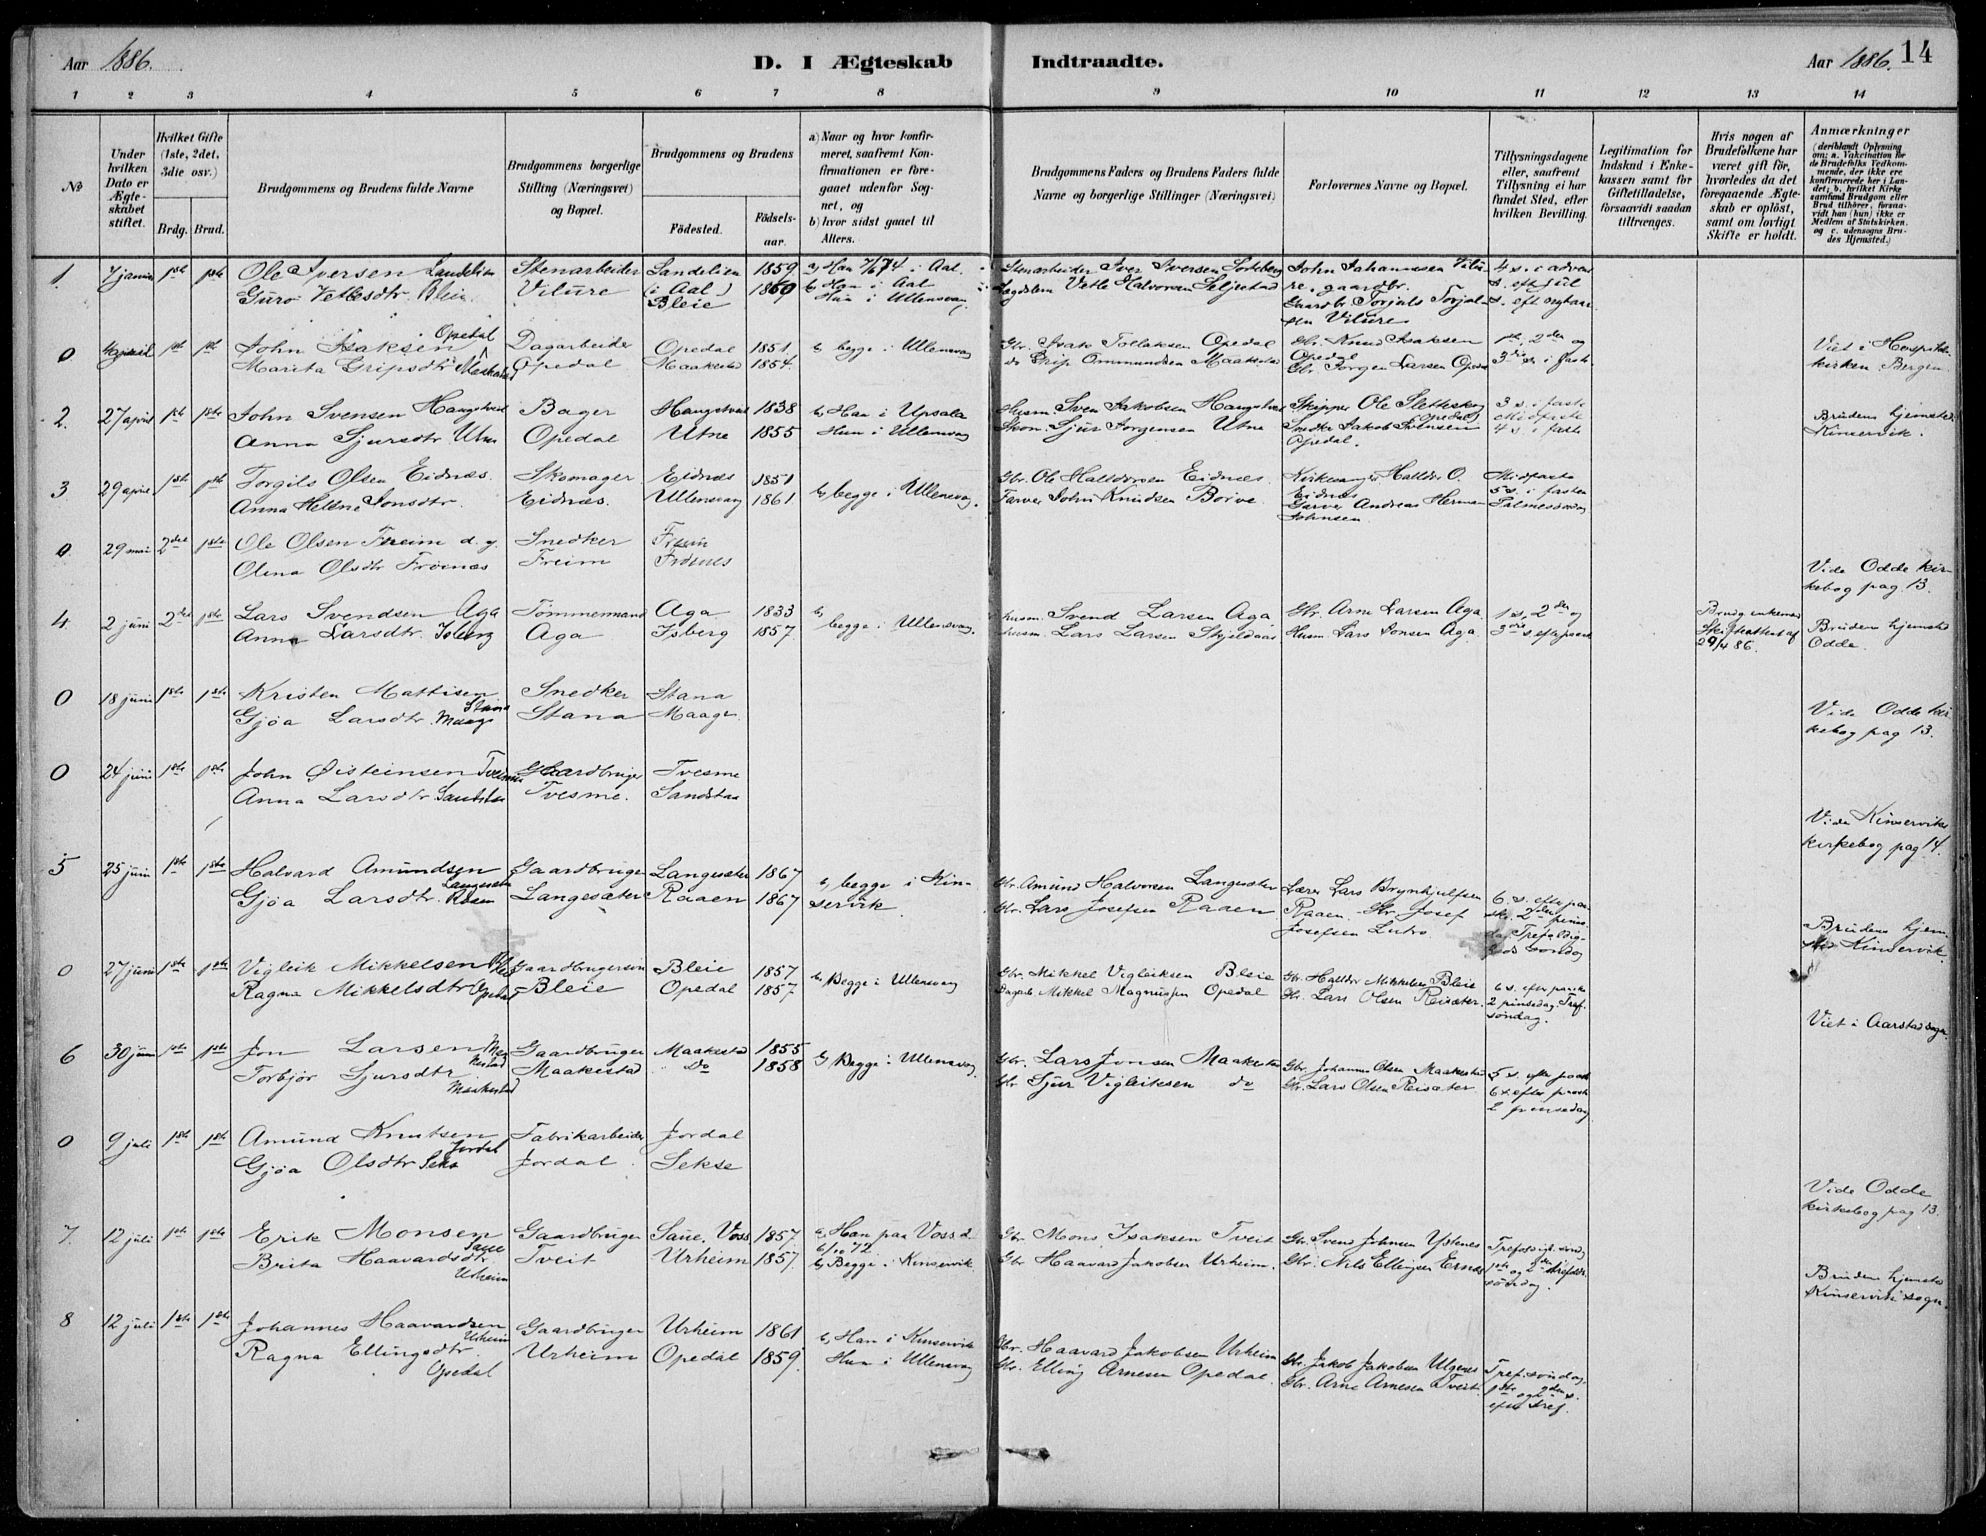 Aar 1886.
D. I Ægteskab Indtraadte.
Aar 1886. 14
1 2 3 4 5 6 7 8 9 10 11 12 13 14
No
Under hvilken Dato er Ægteskabet stiftet.
Hvilket Gifte (1ste, 2det, 3die osv.)
Brdg. Brud.
Brudgommens og Brudens fulde Navne
Brudgommens borgerlige Stilling (Næringsvei) og Bopæl.
Brudgommens og Brudens
Fødested. Fødselsaar.
a) Naar og hvor konfirmeret, saafremt Konfirmationen er foregaaet udenfor Sognet, og
b) hvor sidst gaaet til Alters.
Brudgommens Faders og Brudens Faders fulde Navne og borgerlige Stillinger (Næringsvei)
Forlovernes Navne og Bopæl.
Tillysningsdagene eller, saafremt Tillysning ei har fundet Sted, efter hvilken Bevilling.
Legitimation for Indskud i Enkekassen samt for Giftetilladelse, forsaavidt saadan tiltrænges.
Hvis nogen af Brudefolkene har været gift før, hvorledes da det foregaaende Ægteskab er opløst, samt om lovligt Skifte er holdt.
Anmærkninger (deriblandt Oplysning om: a. Vakcination for de Brudefolks Vedkommende, der ikke ere konfirmerede her i Landet; b. hvilket Kirkesamfund Brudgom eller Brud tilhører, forsaavidt han (hun) ikke er Medlem af Statskirken. og c. udensogns Brudes Hjemsted.)
1. 7 januar 1ste 1ste Ole Iversen Sandelien Stenarbeider Sandelien 1859 a, Han 7/6 74 i Aal. Stenarbeider Iver Iversen John Johannssen Vilure, gaardbr. 4 s. i advent
Guro Vetlesdtr. Bleie Vilure (i Aal) Bleie 1860 b, Han i Aal Hun i Ullensvang Vetle Halvorsen Seljestad Gaardbr. Torjuls Torjulsen Vilure s. eft jul s. eft nytaar
0 april 1ste 1ste John Isaksen Opedal Dagarbeider Opedal 1851 b, begge i Ullensvang Gbr. Isak Tollaksen Opedal Gbr. Knud Isaksen Opedal 1ste, 2den og Viet i Hospitalskirken Bergen
Marita Gripsdtr. Maakestad Opedal Maakestad 1854. do Grip Ommundsen Maakestad Gbr. Jørgen Larsen Opedal 3die s. i faste
2. 27 april 1ste 1ste John Svensen Haugstveit Bager Haugstveit 1838 b, Han i Upsala Husm. Sven Jakobsen Haugstveit Skipper Ole Sletteskog 3 s. i faste Brudens hjemsted
Anna Sjursdtr. Utne Opedal Utne 1855 Hun i Ullensvang Skom. Sjur Jørgensen Utne Snedker Jakob Svensen Opedal. Midfaste 4 s. i faste Kinservik.
3 29 april 1ste 1ste Torgils Olsen Eidnæs. Skomager Eidnæs 1851 b, begge i Ullensvang. Gbr. Ole Halldorsen Eidnæs. Kirkesanger Halldor O. Eidnæs Midfaste
Anna Helene Jonsdtr. Eidnæs. Ullensvang 1861 Farver John Knudsen Børve Garver Andreas Herman Johnsen 5 s. i fasten Palmesøndag
0. 29 mai 2det 1ste Ole Olsen Freim d. y. Snedker Freim Vide Odde kirkebog pag 13.
Olina Olsdtr Frøenæs Freim
4. 2 juni 2det 1ste Lars Svendsen Aga Tømmermand Aga 1833 b, begge i Ullensvang. husm. Svend Larsen Aga Gbr. Arne Larsen Aga. 1 s, 2den og Brdg. enkemand Brudens hjemsted
Anna Larsdtr. Isberg Aga Isberg 1857. husm. Lars Larsen Skjeldaas Husm. Lars Jonsen Aga. 3die s. efter paaske Skifteattest af 29/4 86. Odde.
0 18 juni 1ste 1ste Kristen Mattisen Stana Snedker Stana Vide Odde kirkebog pag 13.
Gjøa Larsdtr. Maage Stana Maage
0 24 juni 1ste 1ste John Øisteinsen Tvesme Gaardbruger Tvesme Vide Kinservik kirkebog pag 14.
Anna Larsdtr Sandstaa Tvesme. Sandstaa
5 25 juni 1ste 1ste Halvard Amundsen Langesæter Gaardbruger Langesæter 1867 b, begge i Kinservik Gbr. Amund Halvorsen Langesæter Lærer Lars Brynhjulfsen Raaen. 6. s. efter paaske. 2den pinsedag Trefoldigheds søndag Brudens hjemsted Kinservik.
Gjøa Larsdtr. Raaen Langesæter Raaen 1867 Gbr. Lars Josefsen Raaen Gbr. Josef Josefsen Lutro
0 27 juni 1ste 1ste Vigleik Mikkelsen Bleie Gaardbrugersøn Bleie 1857 b, Begge i Ullensvang Gbr. Mikkel Vigleiksen Bleie Gbr. Halldor Mikkelsen Bleie 6 s. efter paaske Viet i Aarstad sogn
Ragna Mikkelsdtr Opedal Bleie Opedal 1857. Dagarb. Mikkel Magnussen Opedal Gbr. Lars Olsen Reisæter. 2 pinsedag. Tref. søndag.
6 30 juni 1ste 1ste Jon Larsen Maakestad Gaardbruger Maakestad 1855 b, Begge i Ullensvang Gbr. Lars Jonsen Maakestad Gbr. Johannes Olsen Maakestad 5 s. efter paaske
Torbjør Sjursdtr. Maakestad Maakestad Do 1858 Gbr. Sjur Vigleiksen do Gbr. Lars Olsen Reisæter 6 s. efter paaske 2 pinsedag
0 9 juli 1ste 1ste Amund Knutsen Jordal Fabrikarbeider Jordal Vide Odde kirkebog pag 13.
Gjøa Olsdtr Sekse Jordal. Sekse
7. 12 juli 1ste 1ste Erik Monsen Saue Gaardbruger Saue, Voss 1857. a, Han paa Voss d. 6/10 72 Gbr. Mons Isaksen Tveit Gbr. Svend Johnsen Ystenes Trefoldigh. søndag Brudens hjemsted
Brita Haavardsdtr. Urheim Tveit Urheim 1857. b, Begge i Kinservik. Gbr Haavard Jakobsen Urheim. Gbr. Nils Ellingsen Ernes 1ste og 2den s. søndag Kinservik sogn.
8 12 juli 1ste 1ste Johannes Haavardsen Urheim Gaardbruger Urheim 1861 b, Han i Kinservik Gbr. Haavard Jakobsen Urheim Gbr. Jakob Jakobsen Ulgenes Tref. søndag
Ragna Ellingsdtr. Opedal Urheim Opedal 1859. Hun i Ullensvang Gbr. Elling Arnesen Opedal. Gbr. Arne Arnesen Tveit. 1ste og 2den s. efter tref.